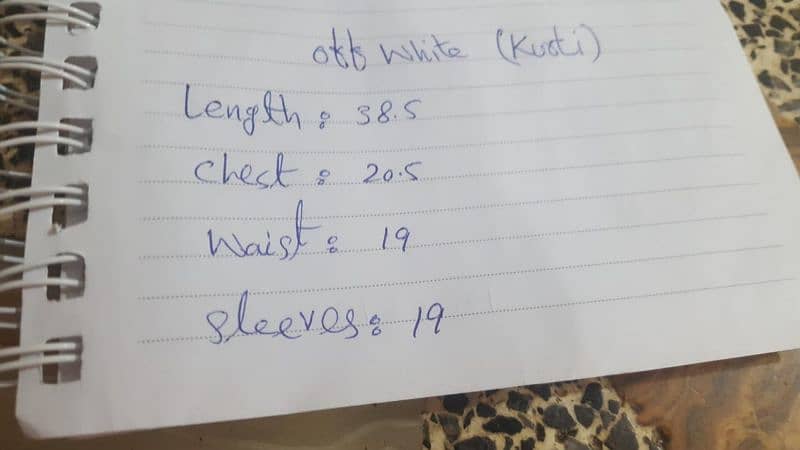 off white (Kurti)
Length: 38.5
chest: 20.5
Waist: 19
sleeves: 19